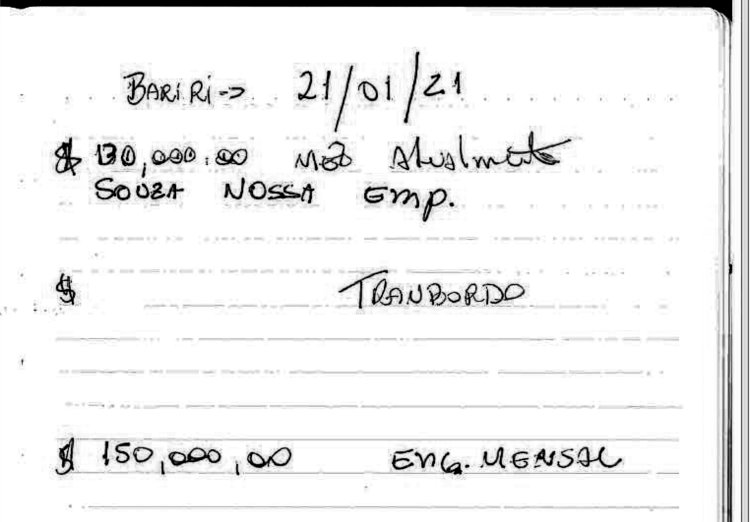 BARIRI -> 21/01/21
$ 130,000.00 MÊS Atualmente
SOUZA NOSSA Emp.
$ TRANBORDO
$ 150,000,00 ENG. MENSAL